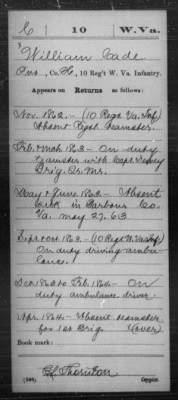 C | 10 | W.Va.
William Cade
Pvt., Co. H, 10 Reg't W. Va. Infantry.
Appears on
Returns as follows:
Nov. 1862.- (10 Regt. Va. Inf)
Absent Regt. teamster.
Feb. & Mch. 1863- On duty
teamster with Capt.
Brig. Qr. Mr.
May & June 1863- Absent
sick in Barbour Co.
Va. May 27, 63
Sept & Oct. 1863.- (10 Regt W. Va. Inf)
On duty driving ambu-
lance.
Dec. 1863 to Feb. 1864- On
duty ambulance driver
Apr. 1864- Absent teamster
for 1st Brig. (over)
Book mark:
Thornton
Copyist.